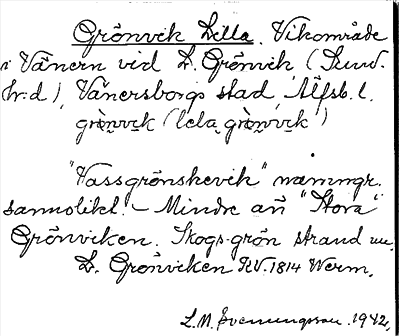 Grönvik Lilla. Vikområde
i Vänern vid L. Grönvik (Sund.
hr:d), Vänersborgs stad, Älfsb. l.
grönvik (lela grönvik)
"Vassgrönskevik" namngr.
sannolikt. – Mindre än "Stora"
Grönviken. Skogs-grön strand nu.
L. Grönviken RV. 1814 Werm.
L. M. Svenungsson. 1942.